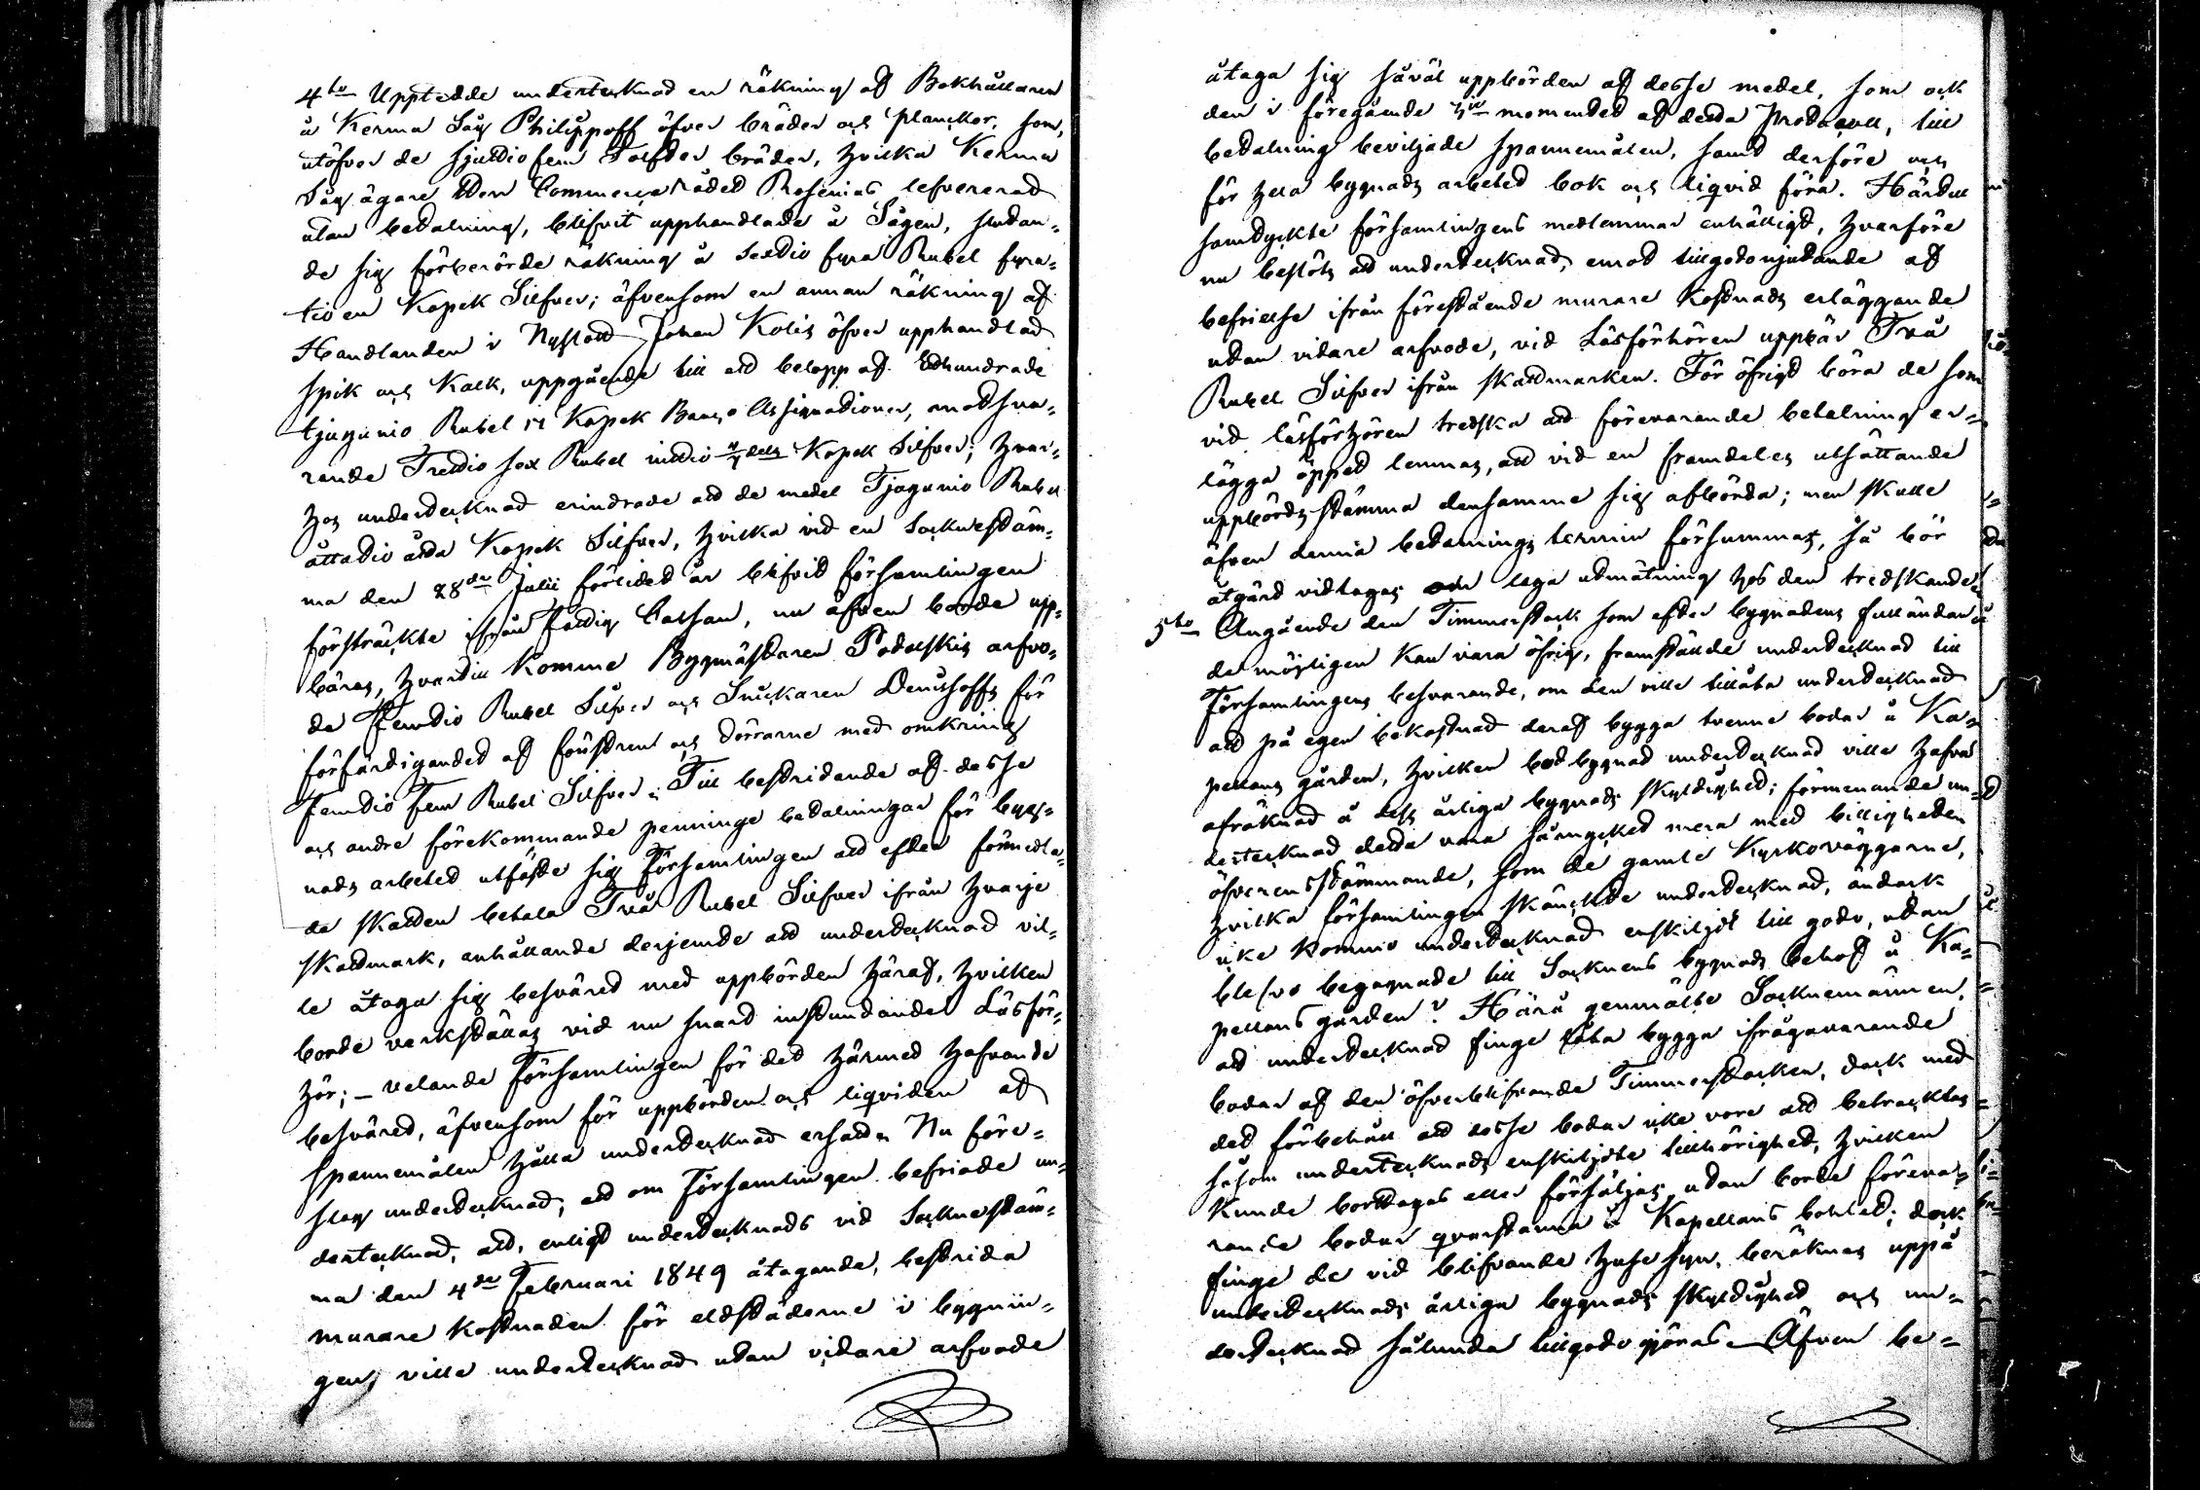 4to Upptedde undertecknad en räkning af Bokhållaren
å Kerma Såg Philippoff öfver bräder och planckor, som,
utöfver de sjuttiofem Tolfter bräder, hvilka Kerma
Sågs ägare Herr Commerce rådet Rosenius lefvererad
utan betalning, blifvit upphandlade å Sågen, slutan-
de sig förberörde räkning å sextio fyra Rubel fyra-
tio en Kopek Silfver; äfvensom en annan räkning af
Handlanden i Nyslott Johan Kolis öfver upphandlad
spik och Kalk, uppgående till ett belopp af Etthundrade
tjugunio Rubel 14 Kopek Banco Assignationer, motsva-
rande Trettio sex Rubel nittio dels Kopek Silfver; hvar-
hos undertecknad erindrade att de medel Tjugunio Rubel
åttatio åtta Kopek Silfver, hvilka vid en Socknestäm-
ma den 28de Julii förlidet år blifvit församlingen
försträckte ifrån Fattig Cassan, nu äfven borde upp-
bäras, hvartill komme Byggmästaren Podelskis arfvo-
de Femtio Rubel Silfver och Snickaren Denishoffs för
förfärdigandet af fönstren och dörrarne med omkring
Femtio fem Rubel Silfver. Till bestridande af desse
och andre förekommande penninge betalningar för bygg-
nads arbetet utfäste sig Församlingen att efter förmedla-
de skatten betala Två Rubel Silfver ifrån hvarje
skattmark, anhållande derjemte att undertecknad vil-
le åtaga sig besväret med uppbörden häraf, hvilken
borde verkställas vid nu snart instundande Läsför-
hör; – velande Församlingen för det härmed hafvande
besväret, äfvensom för uppbörden och liqviden af
spannemålen hålla undertecknad ersatt. Nu före-
slog undertecknad, att om Församlingen befriade un-
dertecknad, att, enligt undertecknads vid Socknestäm-
ma den 4de Februari 1849 åtagande, bestrida
murare kostnaden för eldstäderne i bygnin-
gen, ville undertecknad utan vidare arfvode
åtaga sig såväl uppbörden af desse medel, som ock
den i föregående momentet af detta Protocoll, till
betalning beviljade spannemålen, samt derföre och
för hela bygnads arbetet bok och liqvid föra. Härtill
samtyckte församlingens medlemmar enhälligt, hvarföre
nu beslöts att undertecknad, emot tillgodonjutande af
befrielse ifrån förestående murare kostnads erläggande
utan vidare arfvode, vid Läsförhören uppbär Två
Rubel Silfver ifrån skattmarken. För öfrigt böra de som
vid läsförhören tredska att förevarande betalning er-
lägga öppet lemnas, att vid en framdeles utsättande
uppbörds stämma densamme sig afbörda; men skulle
äfven denna betalnings termin försummas, så bör
åtgärd vidtagas om laga utmätning hos den tredskande.
5to Angående den Timmerstock som efter bygnadens fulländan-
de möjligen kan vara öfrig, framställde undertecknad till
Församlingens besvarande, om den ville tillåta undertecknad
att på egen bekostnad deraf bygga tvenne bodar å Ka-
pellans gården, hvilken bod bygnad undertecknad ville hafva
afräknad å dess årliga bygnads skyldighet; förmenande un-
dertecknad detta vara så mycket mera med billigheten
öfverensstämmande, som de gamle Kyrkoväggarne,
hvilka församlingen skänckte undertecknad, ändock
icke kommo undertecknad enskiljdt till godo, utan
blefvo begagnade till Socknens bygnads behof å Ka-
pellans gården? Härå genmälte Socknemännen,
att undertecknad finge låta bygga ifrågavarande
bodar af den öfverblifvande Timmerstocken, dock med
det förbehåll att desse bodar icke vore att betracktas
såsom undertecknads enskiljdte tillhörighet, hvilken
kunde borttagas eller försäljas, utan borde föreva-
rande bodar qvarstanna å Kapellans bohlet; dock
finge de vid blifvande huse syn, beräknas uppå
undertecknads årliga bygnads skyldighet och un-
dertecknad sålunda tillgodo göras. Äfven be-